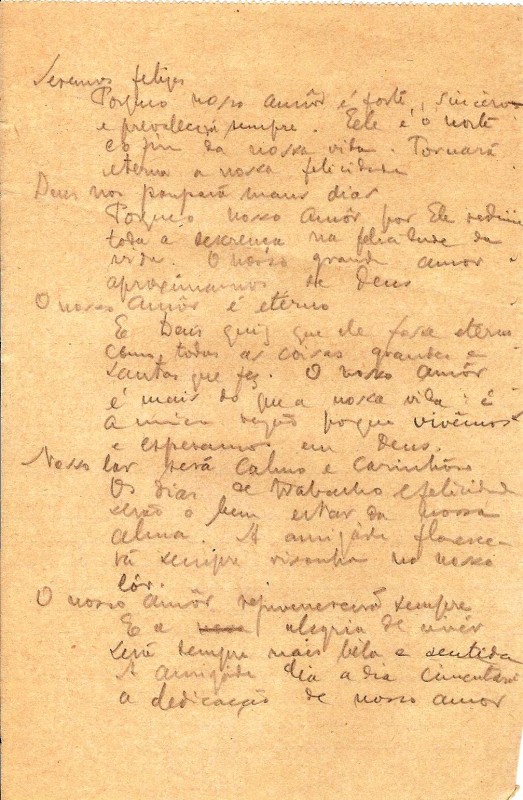 Seremos felizes
Porque nosso amôr é forte, sincero
e prevalecerá sempre. Ele é o norte
e o fim da nossa vida. Tornará
eterna a nossa felicidade
Deus nos poupará maus dias
Porque o nosso amôr por Ele redime
toda a descrença na felicidade da
vida. O nosso grande amor
aproximamos de Deus
O nosso amôr é eterno
E Deus quiz que ele fosse eterno
como todas as coisas grandes e
santas que fez. O nosso amôr
é mais do que a nossa vida: é
a unica razão porque vivêmos
e esperamos em Deus.
Nosso lar será calmo e carinhoso
Os dias de trabalho e felicidade
serão o bem estar da nossa
alma. A amizade floresce-
rá sempre risonha no nosso
lár.
O nosso amôr rejuvenescerá sempre
E a alegria de vivêr
será sempre mais bela e sentida
A amizade dia a dia cimentará
a dedicação de nosso amor